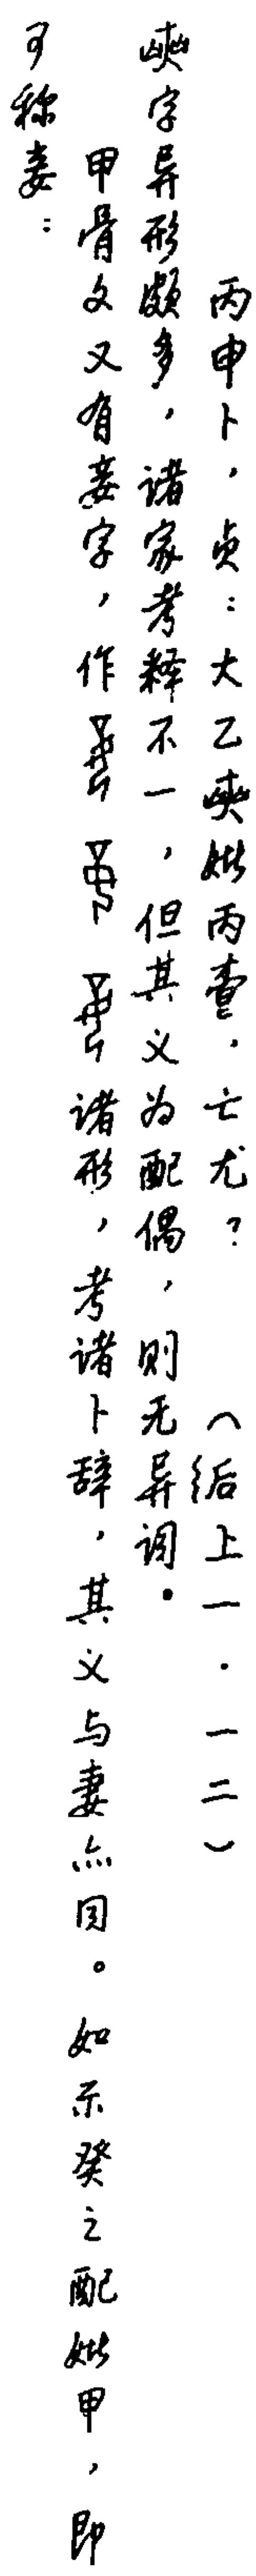 丙申卜，贞：大乙奭妣丙𧯽，亡尤？（后上一·一二）
奭字异形颇多，诸家考释不一，但其义为配偶，则无异词。
甲骨文又有妾字，作诸形，考诸卜辞，其义与妻亦同。如示癸之配妣甲，即
可称妾：